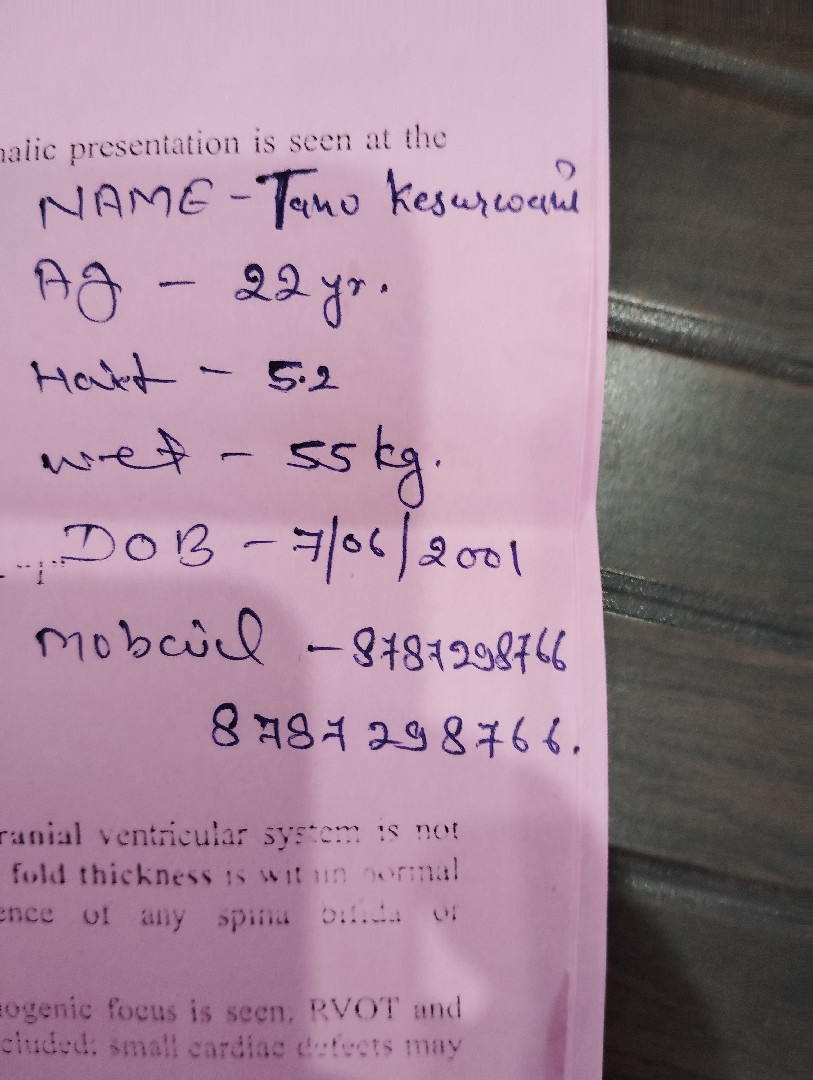 nalic presentation is seen at the
NAME - Tano Kesurwani
Ag - 22 yr.
Hait - 5.2
wet - 55 kg.
DOB - 7/06/2001
- "1"
Mobciil - 8787298766
8787298766.
ranial ventricular system is not
fold thickness is within normal
ence of any spina bifida or
nogenic focus is seen. RVOT and
cluded: small cardiac defects may